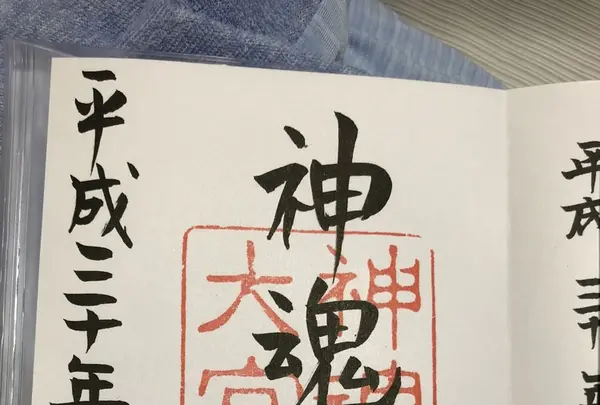 平成三十年
神魂
神
大
平成三十年